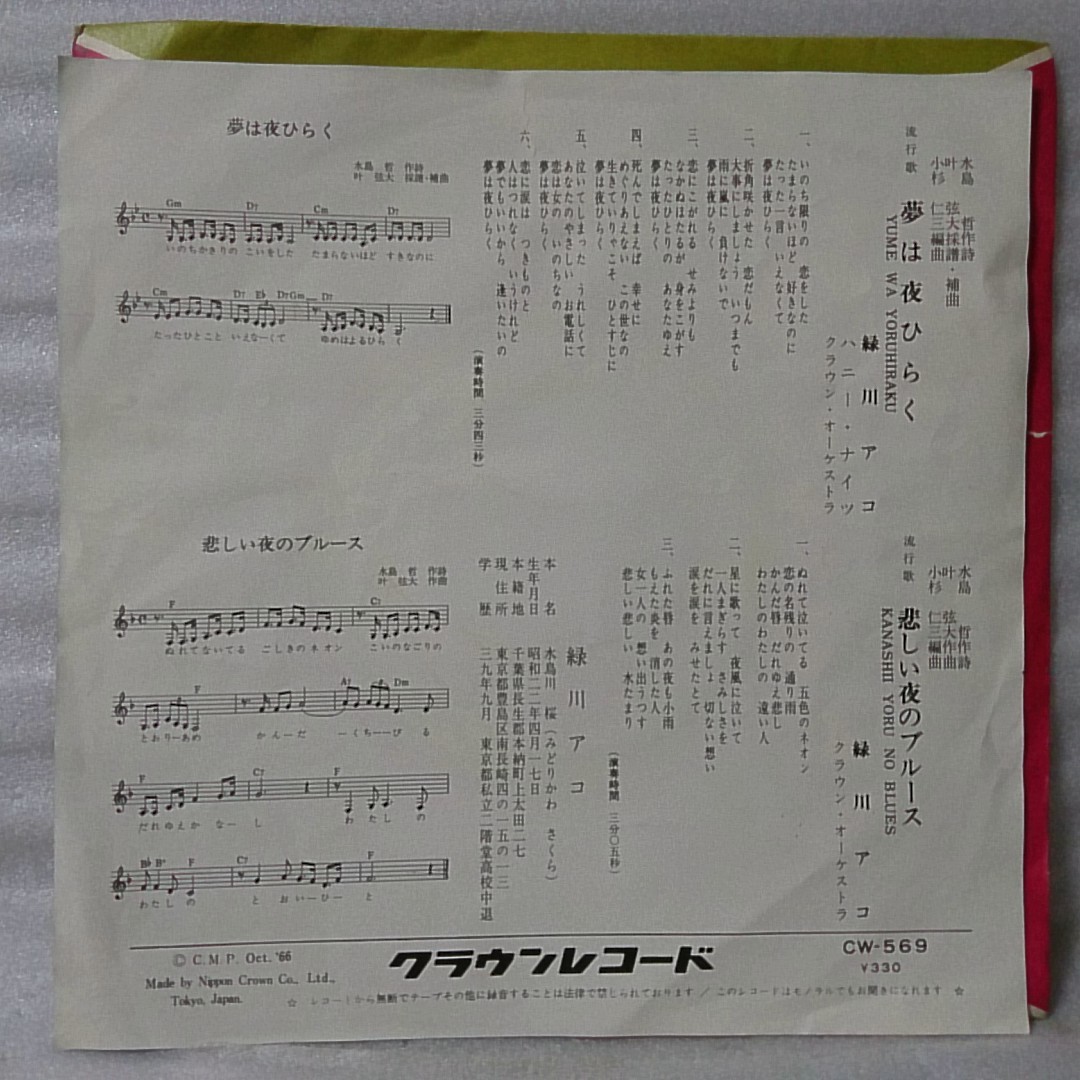 水島 哲作詩
叶 弦大採譜・補曲
小杉 仁三編曲
流行歌
夢は夜ひらく
YUME WA YORUHIRAKU
緑川アコ
ハニー・ナイツ
クラウン・オーケストラ
一、いのち限りの 恋をした
たまらないほど 好きなのに
たった一言 いえなくて
夢は夜ひらく
二、折角咲かせた 恋だもん
大事にしましょう いつまでも
雨に嵐に 負けないで
夢は夜ひらく
三、恋にこがれる せみよりも
なかぬほたるが 身をこがす
たったひとりの あなたゆえ
夢は夜ひらく
四、死んでしまえば 幸せに
めぐりあえない この世なの
生きていりゃこそ ひとすじに
夢は夜ひらく
五、泣いてしまった うれしくて
あなたのやさしい お電話に
恋は女の いのちなの
夢は夜ひらく
六、恋に涙は つきものと
人はつれなく いうけれど
夢でもいいから 逢いたいの
夢は夜ひらく
(演奏時間 三分四三秒)
夢は夜ひらく
水島 哲 作詩
叶 弦大 採譜・補曲
Gm D7 Cm D7
いのちかぎりの こいをした たまらないほど すきなのに
Cm D7 E♭ D7 Gm D7
たったひとこと いえなーくて ゆめはよるひらく
水島 哲作詩
叶 弦大作曲
小杉 仁三編曲
流行歌
悲しい夜のブルース
KANASHII YORU NO BLUES
緑川アコ
クラウン・オーケストラ
一、ぬれて泣いてる 五色のネオン
恋の名残りの 通り雨
かんだ唇 だれゆえ悲し
わたしのわたしの 遠い人
二、星に歌って 夜風に泣いて
一人まぎらす さみしさを
だれに言えましょ 切ない想い
涙を涙を みせたとて
三、ふれた唇 あの夜も小雨
もえた炎を 消した人
女一人の 想い出うつす
悲しい悲しい 水たまり
(演奏時間 三分〇五秒)
緑川アコ
本名 水島川 桜(みどりかわ さくら)
生年月日 昭和二二年四月一七日
本籍地 千葉県長生郡本納町上太田二七
現住所 東京都豊島区南長崎四の一五の一三
学歴 三九年九月 東京都私立二階堂高校中退
悲しい夜のブルース
水島 哲 作詩
叶 弦大 作曲
F C7
ぬれてないてる ごしきのネオン こいのなごりの
F A7 Dm
とおりーあめ かんーだ ーくちーーびる
F C7 F
だれゆえかなーし わたしの
B♭ B° F C7 F
わたしの とおいーひーと
© C.M.P. Oct. '66
Made by Nippon Crown Co., Ltd.,
Tokyo, Japan.
クラウンレコード
CW-569
¥330
☆ レコードから無断でテープその他に録音することは法律で禁じられております / このレコードはモノラルでもお聞きになれます ☆